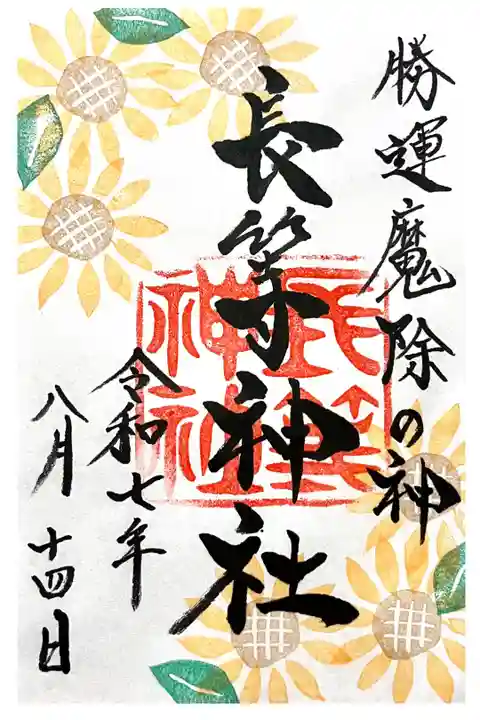 勝運魔除の神
長等神社
令和七年
八月十四日
長等
神社